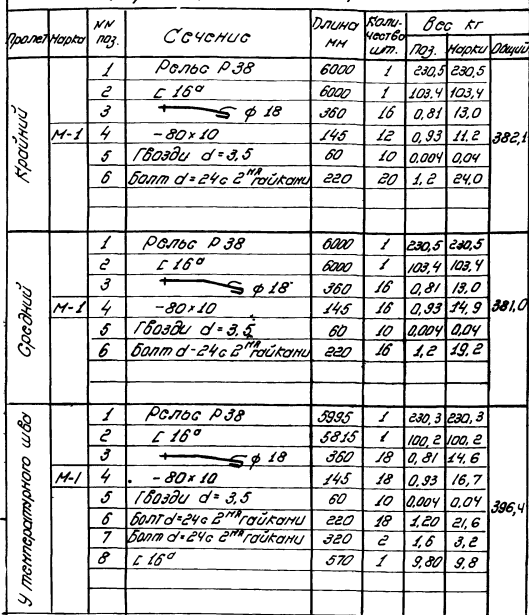 Пролет Марка NN поз. Сечение Длина мм Коли-чество шт. Вес кг
поз. Марки Общий
Крайний М-1 382,1
1 Рельс Р38 6000 1 230,5 230,5
2 [ 16а 6000 1 103,4 103,4
3 ф 18 360 16 0,81 13,0
4 -80×10 145 12 0,93 11,2
5 Гвозди d=3,5 60 10 0,004 0,04
6 болт d=24 с 2мя гайками 220 20 1,2 24,0
Средний М-1 381,0
1 Рельс Р38 6000 1 230,5 230,5
2 [ 16а 6000 1 103,4 103,4
3 ф 18 360 16 0,81 13,0
4 -80×10 145 16 0,93 14,9
5 Гвозди d=3,5 60 10 0,004 0,04
6 болт d-24 с 2мя гайками 220 16 1,2 19,2
У температурного шва М-1 396,4
1 Рельс Р38 5995 1 230,3 230,3
2 [ 16а 5815 1 100,2 100,2
3 ф 18 360 18 0,81 14,6
4 -80×10 145 18 0,93 16,7
5 Гвозди d=3,5 60 10 0,004 0,04
6 болт d=24 с 2мя гайками 220 18 1,20 21,6
7 болт d=24 с 2мя гайками 320 2 1,6 3,2
8 [ 16а 570 1 9,80 9,8